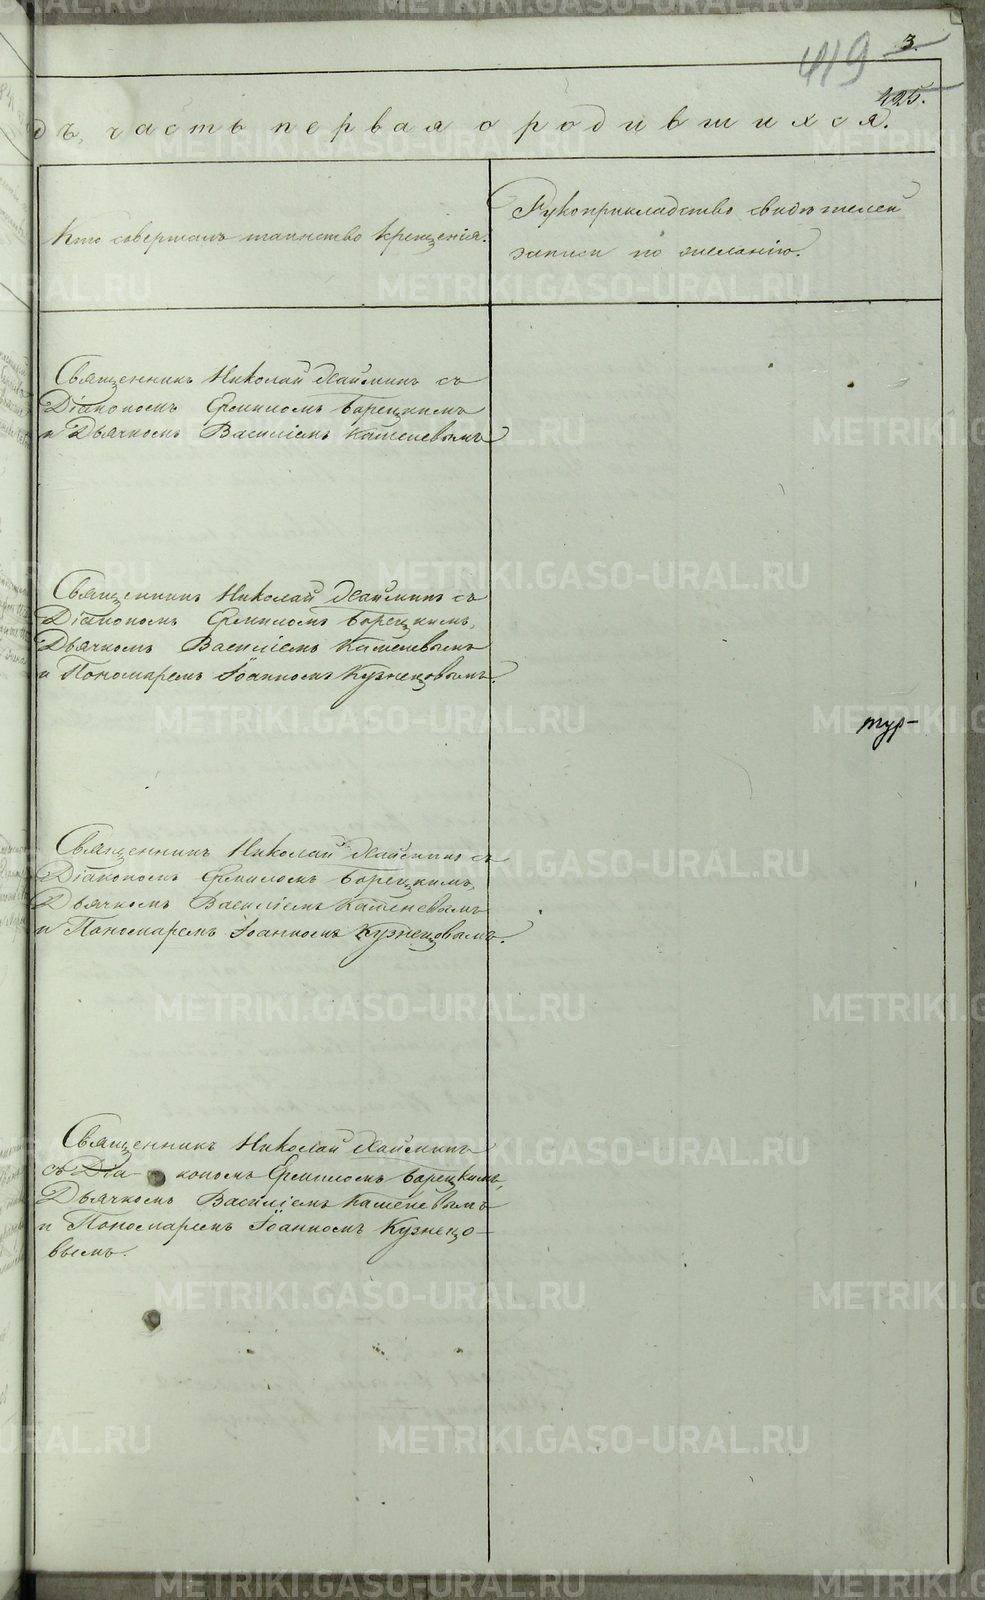 419 3.
425.
дъ, часть первая о родившихся.
Кто совершалъ таинство крещенія.
Рукоприкладство свидѣтелей
записи по желанію.
Священникъ Николай Хаймин съ
Діакономъ Ермиломъ Борецкимъ
и Дьячкомъ Василіемъ Каменевымъ
Священникъ Николай Хайминъ съ
Діакономъ Ермиломъ Борецкимъ,
Дьячкомъ Василіемъ Каменевымъ
и Пономаремъ Іоанномъ Кузнецовымъ.
тур-
Священникъ Николай Хайминъ съ
Діакономъ Ермиломъ Борецкимъ,
Дьячкомъ Василіемъ Каменевымъ
и Пономаремъ Іоанномъ Кузнецовымъ.
Священникъ Николай Хайминъ
съ Діа- кономъ Ермиломъ Борецкимъ,
Дьячкомъ Василіемъ Каменевымъ
и Пономаремъ Іоанномъ Кузнецо-
вымъ.
METRIKI.GASO-URAL.RU